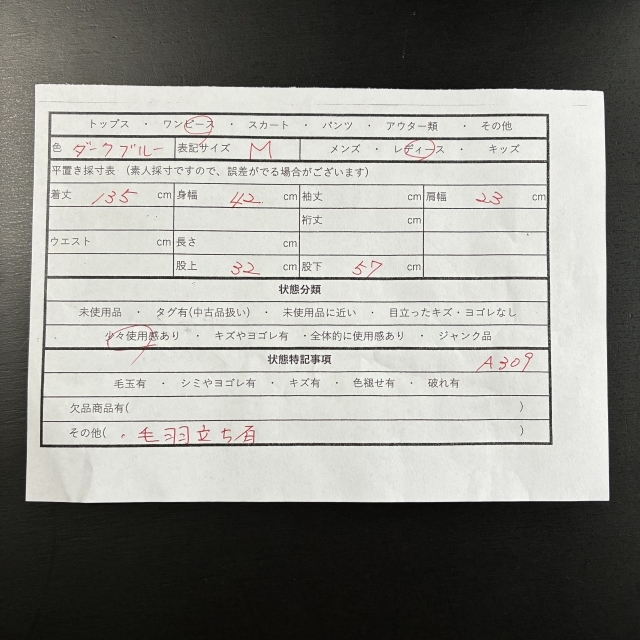 トップス ・ ワンピース ・ スカート ・ パンツ ・ アウター類 ・ その他
色 ダークブルー 表記サイズ M メンズ ・ レディース ・ キッズ
平置き採寸表 (素人採寸ですので、誤差がでる場合がございます)
着丈 135 cm 身幅 42 cm 袖丈 cm 肩幅 23 cm
裄丈 cm
ウエスト cm 長さ cm
股上 32 cm 股下 57 cm
状態分類
未使用品 ・ タグ有(中古品扱い) ・ 未使用品に近い ・ 目立ったキズ・ヨゴレなし
少々使用感あり ・ キズやヨゴレ有 ・全体的に使用感あり ・ ジャンク品
状態特記事項 A309
毛玉有 ・ シミやヨゴレ有 ・ キズ有 ・ 色褪せ有 ・ 破れ有
欠品商品有( )
その他( ・毛羽立ち有 )